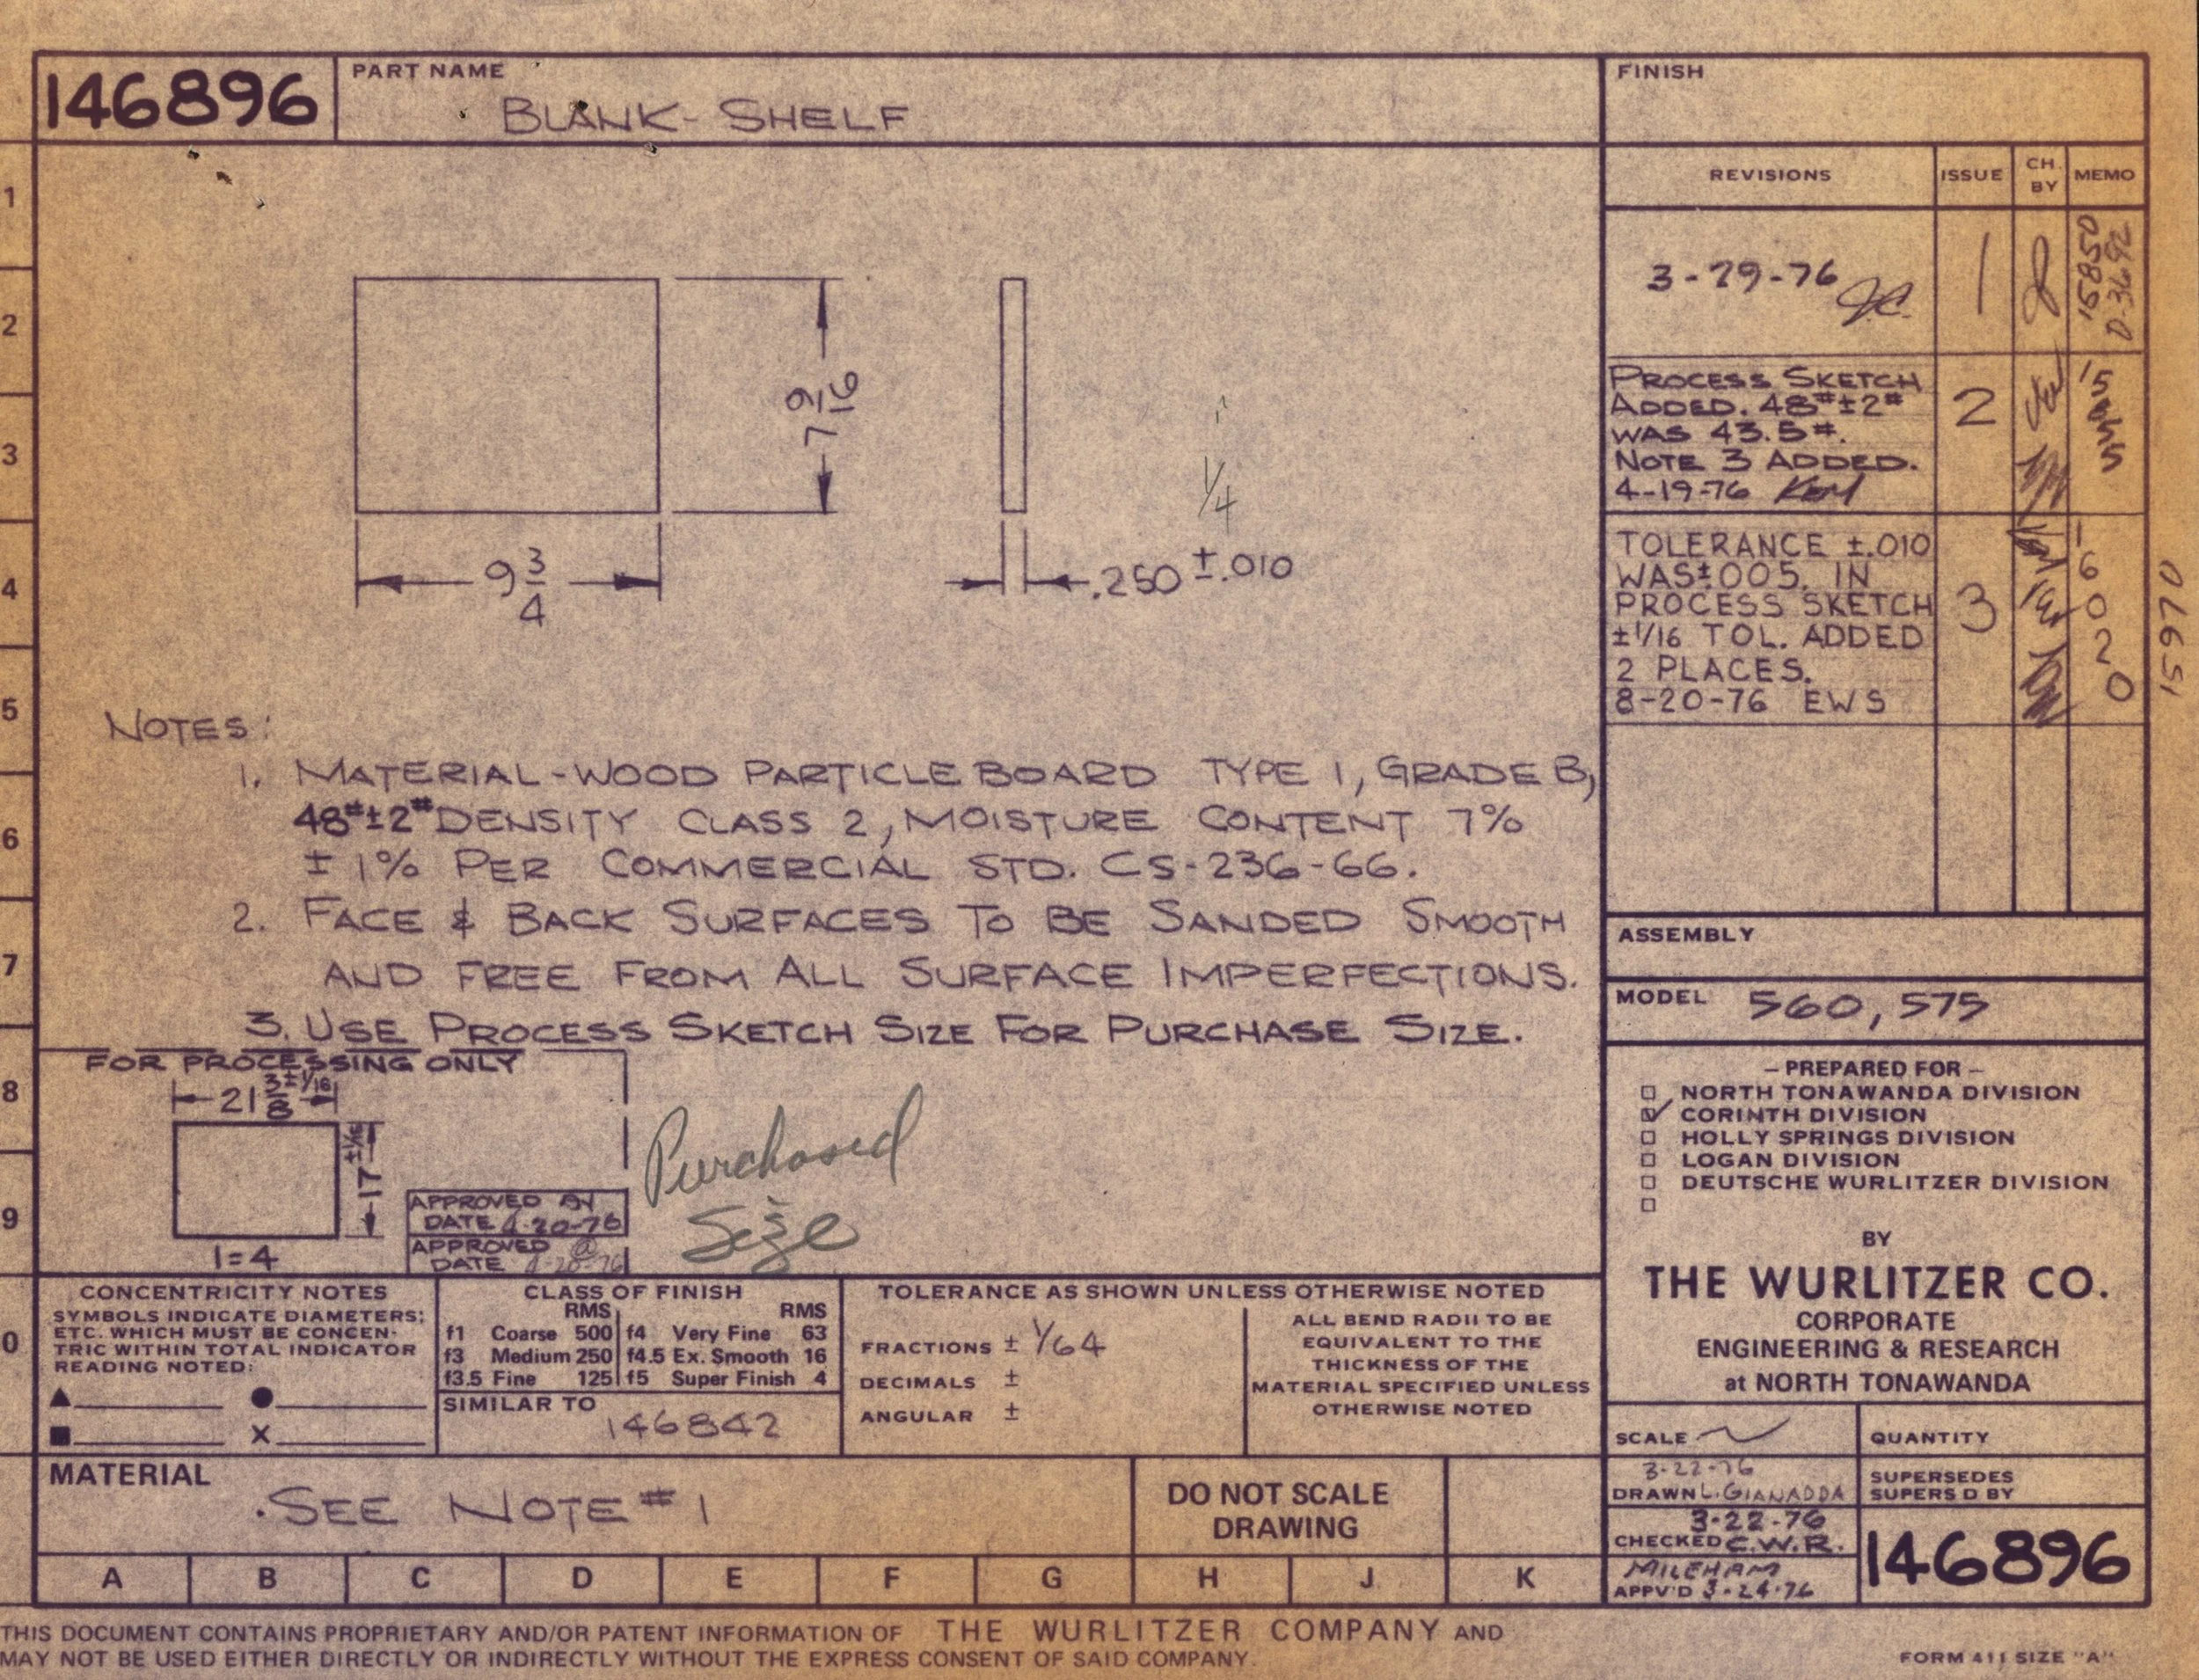 146896
PART NAME
BLANK- SHELF
FINISH
REVISIONS
ISSUE
CH. BY
MEMO
3-29-76 J.C.
1
15850
D-3692
PROCESS SKETCH
ADDED. 48#±2#
WAS 43.5#.
NOTE 3 ADDED.
4-19-76 KEM
2
TOLERANCE ±.010
WAS±.005. IN
PROCESS SKETCH
±1/16 TOL. ADDED
2 PLACES.
8-20-76 EWS
3
16020
15970
1
2
3
4
5
6
7
8
9
0
7 9/16
9 3/4
1/4
.250 ±.010
NOTES:
1. MATERIAL-WOOD PARTICLE BOARD TYPE 1, GRADE B,
48#±2# DENSITY CLASS 2, MOISTURE CONTENT 7%
± 1% PER COMMERCIAL STD. CS-236-66.
2. FACE & BACK SURFACES TO BE SANDED SMOOTH
AND FREE FROM ALL SURFACE IMPERFECTIONS.
3. USE PROCESS SKETCH SIZE FOR PURCHASE SIZE.
FOR PROCESSING ONLY
21 3/8 ±1/16
17 ±1/16
1=4
APPROVED
DATE 4-20-76
APPROVED
DATE 4-20-76
Purchased
Size
ASSEMBLY
MODEL 560, 575
– PREPARED FOR –
NORTH TONAWANDA DIVISION
CORINTH DIVISION
HOLLY SPRINGS DIVISION
LOGAN DIVISION
DEUTSCHE WURLITZER DIVISION
BY
THE WURLITZER CO.
CORPORATE
ENGINEERING & RESEARCH
at NORTH TONAWANDA
CONCENTRICITY NOTES
SYMBOLS INDICATE DIAMETERS;
ETC. WHICH MUST BE CONCEN-
TRIC WITHIN TOTAL INDICATOR
READING NOTED:
▲ ●
■ X
CLASS OF FINISH
RMS RMS
f1 Coarse 500 f4 Very Fine 63
f3 Medium 250 f4.5 Ex. Smooth 16
f3.5 Fine 125 f5 Super Finish 4
SIMILAR TO
146842
TOLERANCE AS SHOWN UNLESS OTHERWISE NOTED
FRACTIONS ± 1/64
DECIMALS ±
ANGULAR ±
ALL BEND RADII TO BE
EQUIVALENT TO THE
THICKNESS OF THE
MATERIAL SPECIFIED UNLESS
OTHERWISE NOTED
SCALE
QUANTITY
MATERIAL
SEE NOTE #1
DO NOT SCALE
DRAWING
3-22-76
DRAWN L. GIANADDA
SUPERSEDES
SUPERS'D BY
3-22-76
CHECKED C.W.R.
MILEHAM
APPV'D 3-24-76
146896
A B C D E F G H J K
THIS DOCUMENT CONTAINS PROPRIETARY AND/OR PATENT INFORMATION OF THE WURLITZER COMPANY AND
MAY NOT BE USED EITHER DIRECTLY OR INDIRECTLY WITHOUT THE EXPRESS CONSENT OF SAID COMPANY.
FORM 411 SIZE "A"